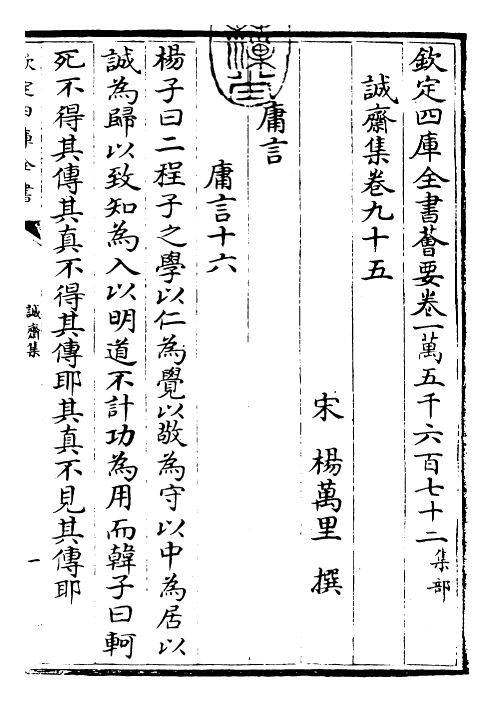 欽定四庫全書薈要卷一萬五千六百七十二 集部
誠齋集卷九十五
宋 楊萬里 撰
庸言
庸言十六
楊子曰二程子之學以仁為覺以敬為守以中為居以
誠為歸以致知為入以明道不計功為用而韓子曰軻
死不得其傳其真不得其傳耶其真不見其傳耶
欽定四庫全書
誠齋集
一